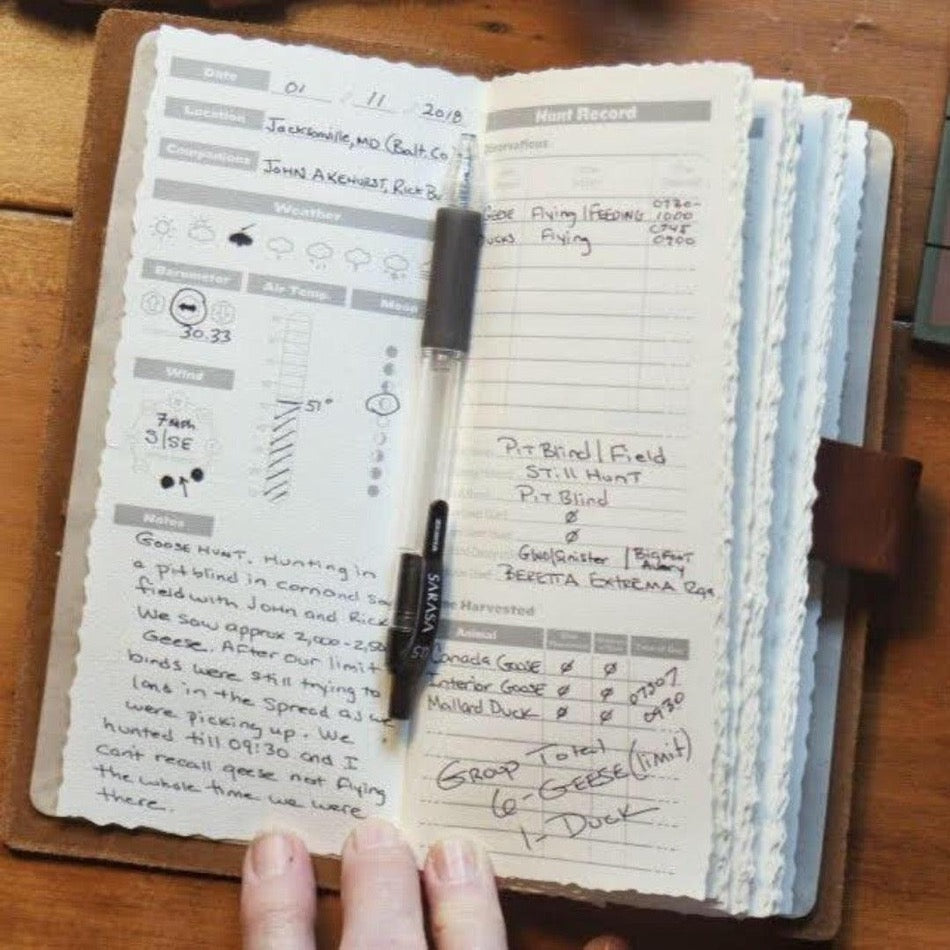 Date 01 / 11 / 2018
Location Jacksonville, MD (Balt. Co
Companions JOHN AKEHURST, RICK
Weather
Barometer Air Temp. Moon
30.33
51°
Wind
7mph
S/SE
Notes
GOOSE HUNT. HUNTING in
a pit blind in corn and
field with JOHN and RICK
We saw approx 2,000-2,50
Geese. AFTER our limit
birds were still trying to
land in the spread as we
were picking up. We
hunted till 09:30 and I
cant recall geese not flying
the whole time we were
there.
Hunt Record
Observations
GEESE Flying / FEEDING 0730-
1000
DUCKS Flying 0745
0900
PIT Blind / Field
STill HunT
PIT Blind
Ø
Ø
GHG/Sinister / BIGFOOT
Avery
BERETTA EXTREMA
Harvested
Animal
Canada Goose Ø Ø
Interior Goose Ø Ø
Mallard Duck Ø Ø 0930
Total
GROUP
6-GEESE (limit)
1-DUCK
SARASA